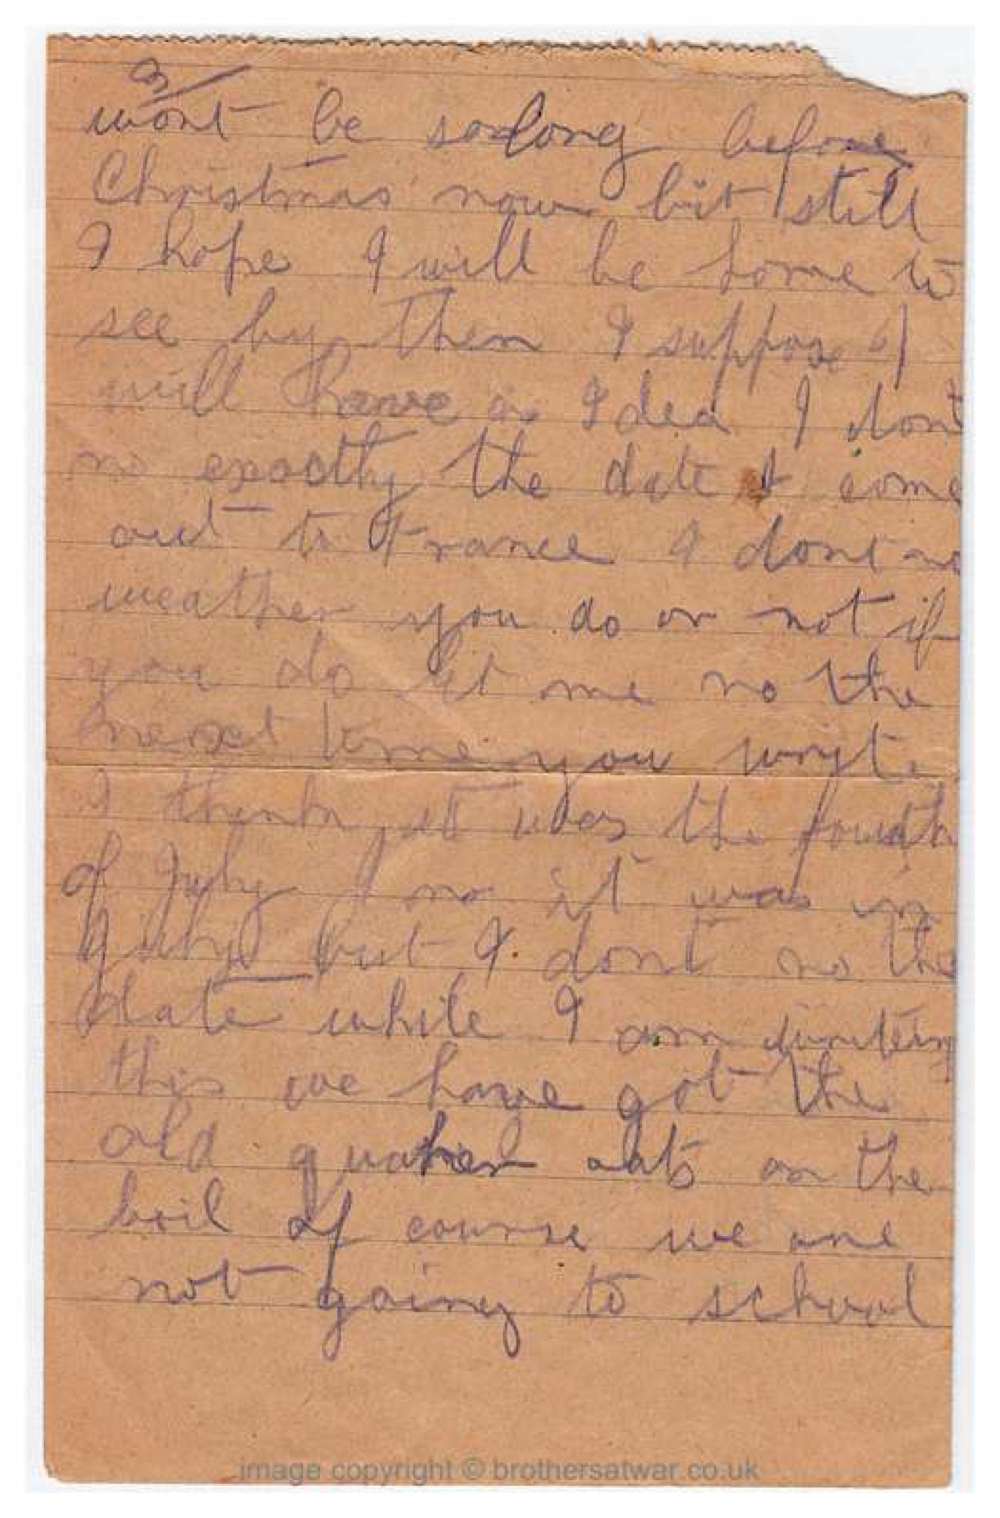 3/
wont be so long before
Christmas now but still
I hope I will be home to
see by then I suppose I
will have a Idea I dont
no exactly the date I come
out to France I dont no
weather you do or not if
you do let me no the
next time you write
I think it was the fourth
of July I no it was in
July but I dont no the
date while I am writein
this we have got the
old quaker oats on the
boil of course we are
not going to school
image copyright © brothersatwar.co.uk